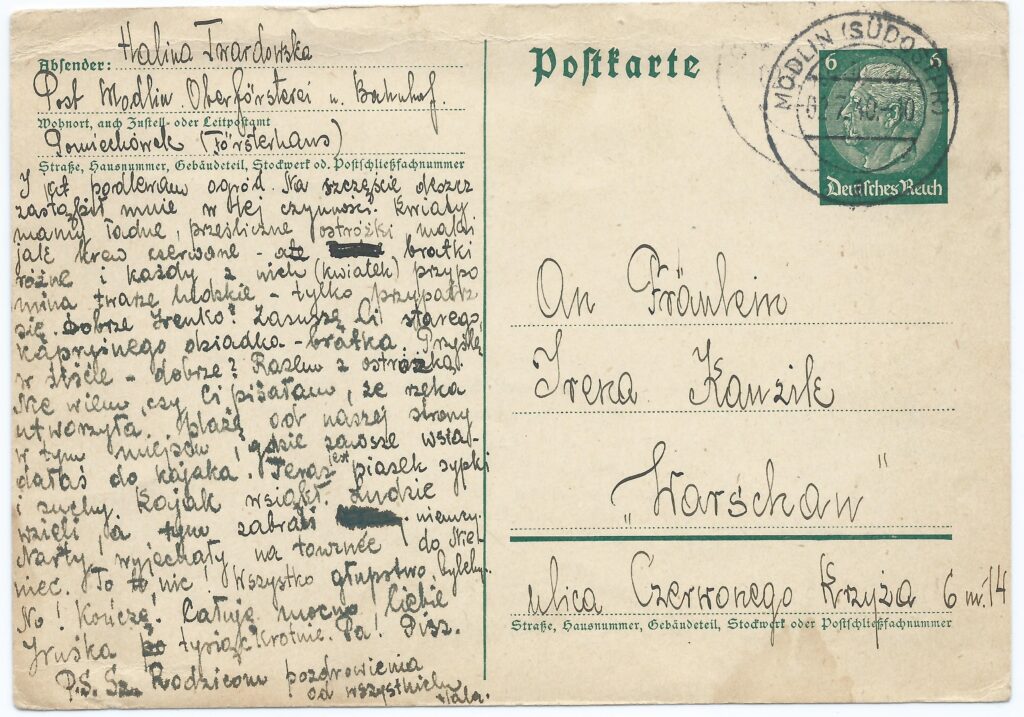 Absender: Halina Twardowska
Post Modlin Oberförsterei u. Bahnhof.
Wohnort, auch Zustell- oder Leitpostamt
Pomiechówek (Försterhaus)
Straße, Hausnummer, Gebäudeteil, Stockwerk od. Postschließfachnummer
I ja podlewam ogród. Na szczęście deszcz
zastąpił mnie w tej czynności. Kwiaty
mamy ładne, prześliczne ostróżki maki
jak krew czerwone - ale bratki
różne i każdy z nich (kwiatek) przypo
mina twarze ludzkie - tylko przypatrz
się. Dobrze Irenko? Zasuszę Ci starego
kapryśnego dziadka - bratka. Przyślę
w liście - dobrze? Razem z ostróżką.
Nie wiem, czy Ci pisałam, że rzeka
utworzyła plażę od naszej strony
w tym miejscu, gdzie zawsze wsia-
dałaś do kajaka. Teraz jest piasek sypki
i suchy. Kajak wsiąkł. Ludzie
wzieli, a tym zabrali niemcy.
Narty wyjechały na tournée do Nie-
miec. To nic! Wszystko głupstwo, byleby.
No! Kończę. Całuję mocno Ciebie
Iruśka tysiąckrotnie. Pa! Pisz.
P.S. Sz. Rodzicom pozdrowienia
od wszystkich Hala.
Postkarte
MODLIN (SÜDOSTPR)
02.7.40.-10
6 6
Deutsches Reich
An Fräulein
Irena Kanzik
"Warschau"
ulica Czerwonego Krzyża 6 m. 14
Straße, Hausnummer, Gebäudeteil, Stockwerk oder Postschließfachnummer